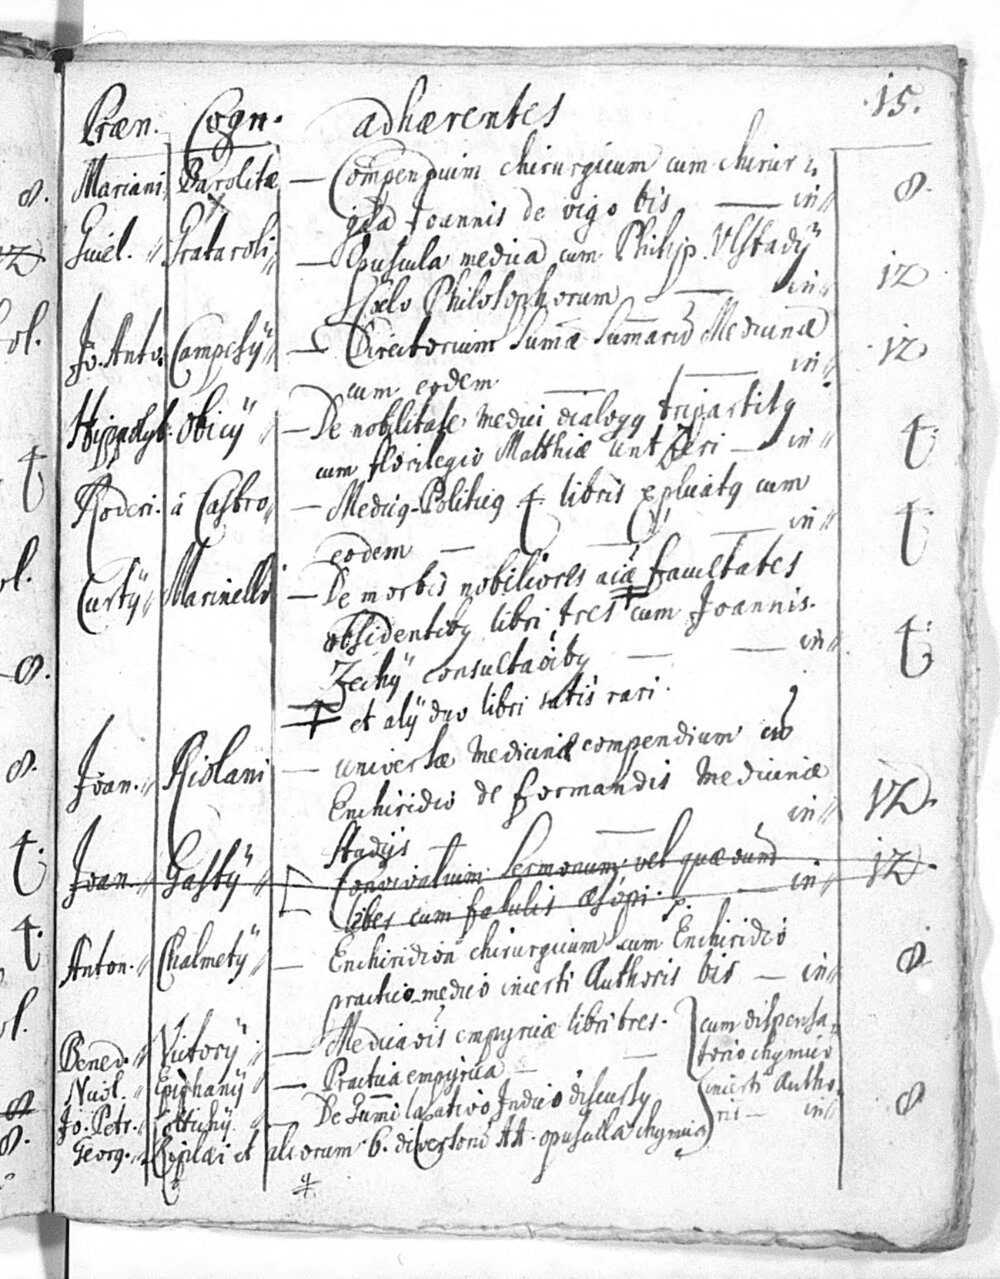 15.
Præn. Cogn. adhærentes
Mariani Barolitæ — Compendium chirurgicum cum chirur
gia Joannis de vigo bis — in 8.
Guiel. Grataroli — Opuscula medica cum Philip. Ulstadÿ
Cœlo Philosophorum — in 12
Jo. Anto. Campesÿ — Directorium Sumæ Sumarū Medicinæ
cum eodem — in 12
Hippolyt. Obicÿ — De nobilitate medici dialogꝯ tripartitꝯ
cum florilegio Matthiæ Untzeri — in 4.
Roderi. á Castro — Medicꝯ-Politicꝯ 4. libris explicatꝯ cum
eodem — in 4.
Curtÿ Marinelli — De morbis nobiliores aīæ facultates
obsidentibꝯ libri tres ‡ cum Joannis.
Zechÿ consultaōibꝯ — in 4.
‡ et alÿ duo libri satis rari.
Joan. Riolani — universæ Medicinæ compendium cū
Enchiridio de formandis Medicinæ
Stadÿs — in 12.
Joan. Gastÿ Convivalium Sermonum vel quædam
liber cum fabulis Æsopi. — in 12.
Anton. Chalmetÿ — Enchiridion chirurgicum cum Enchiridio
practico-medico incerti Authoris bis — in 8.
Bened. Victorÿ — Medicaōis empyricæ libri tres. cum dispensa-
torio chymico
Nicol. Epiphanÿ — Practica empyrica — incerti Autho-
Jo. Petr. — De Summi laxativo Indico discussꝯ ris — in 8
Georg. Riplæi et aliorum 6. diversorū AA. opuscula chymica